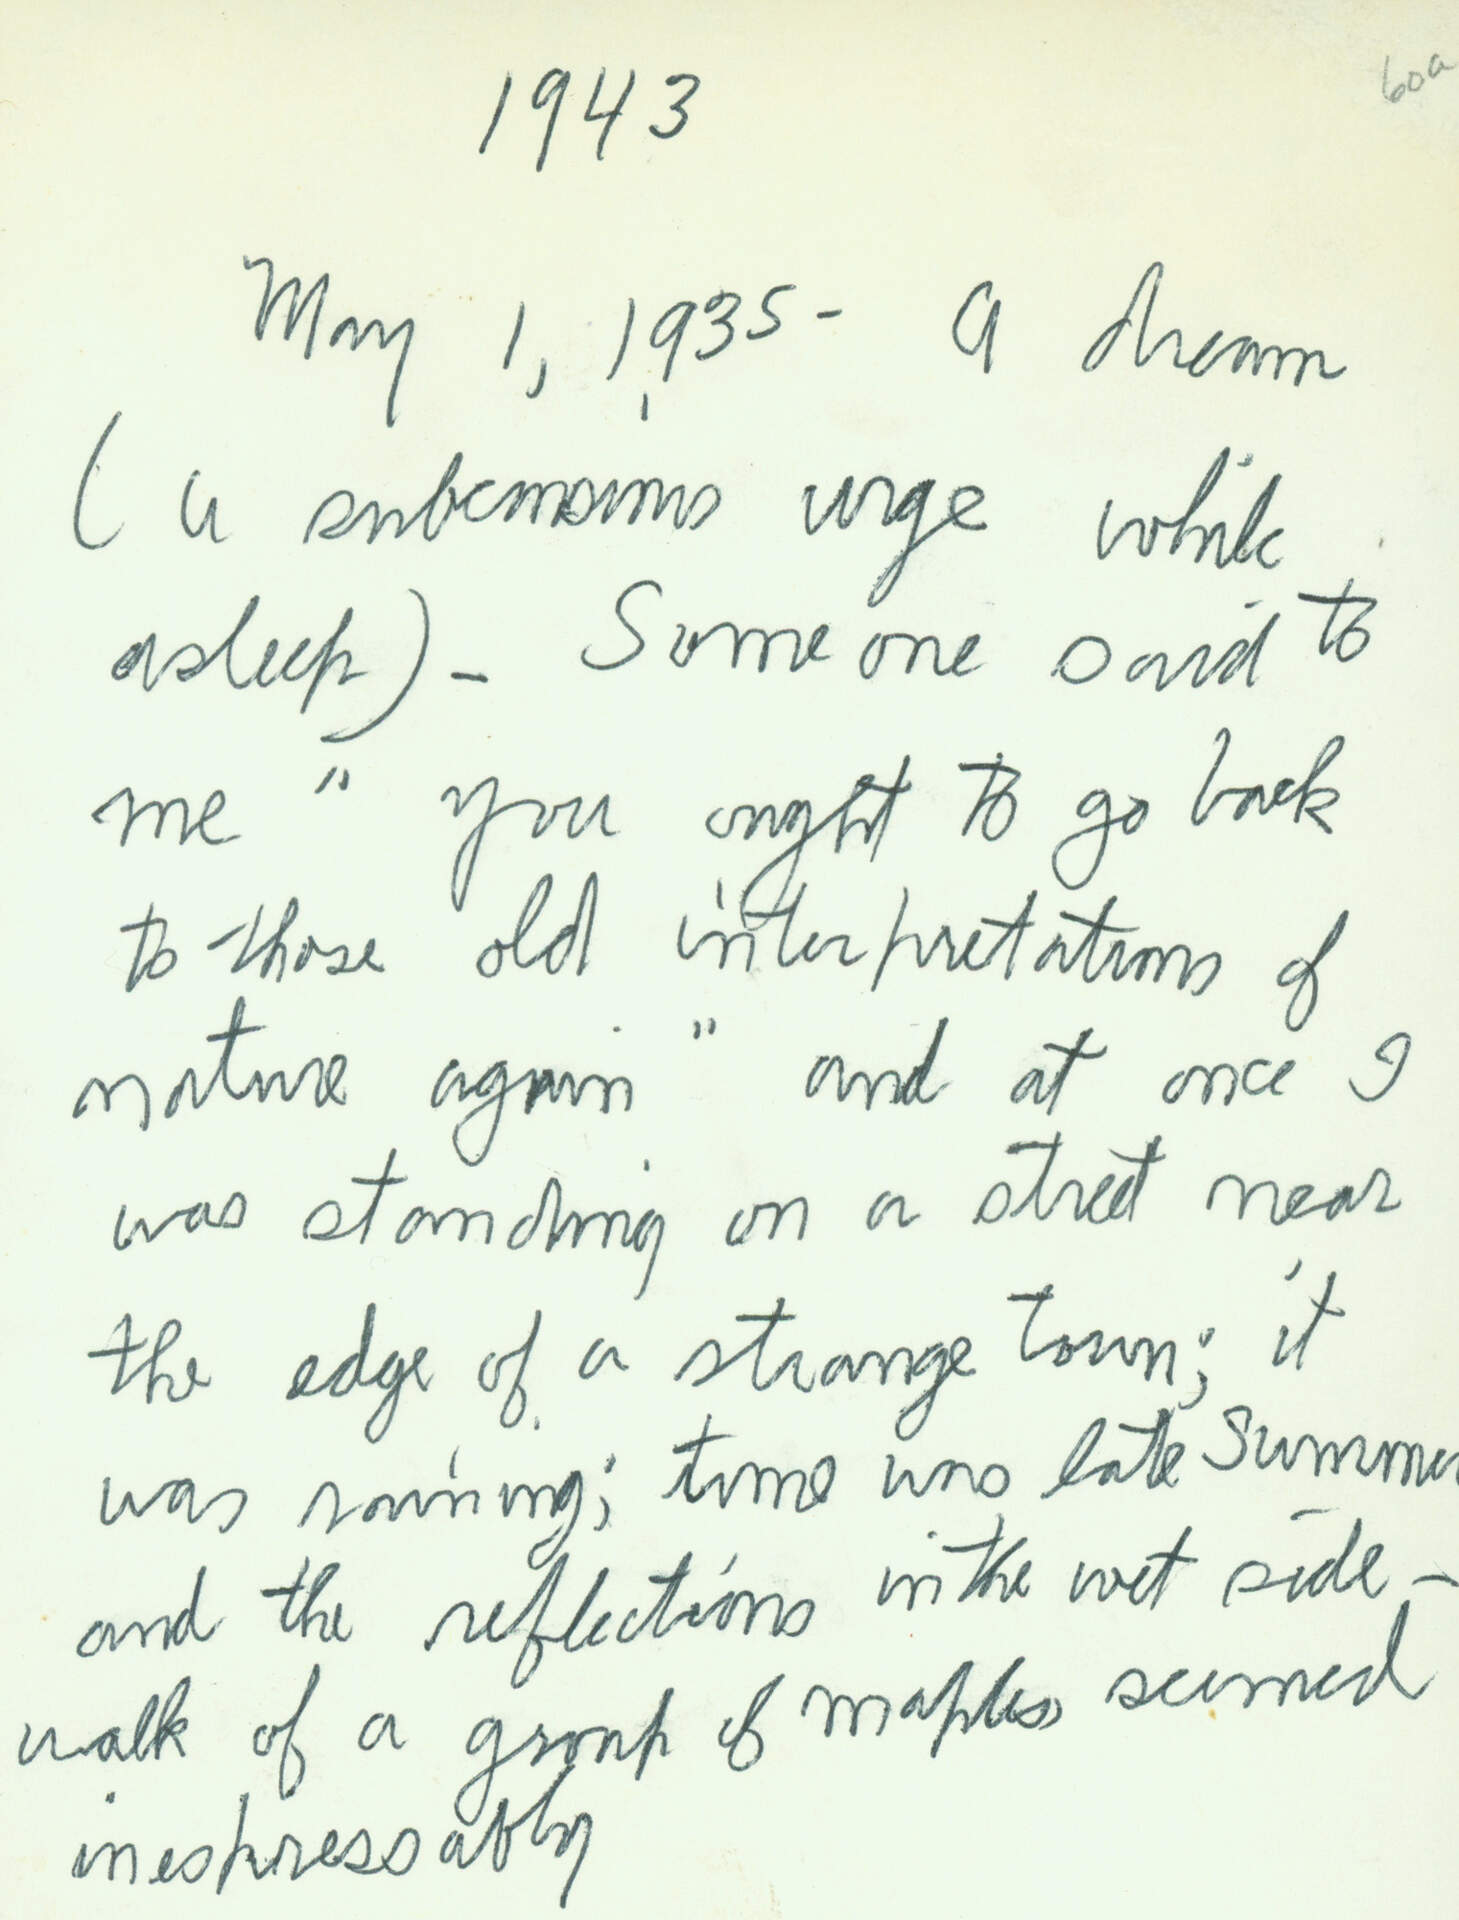 60a
1943
May 1, 1935 - A dream
(a subconsious urge while
asleep) - Someone said to
me " you ought to go back
to those old interpretations of
nature again " and at once I
was standing on a street near
the edge of a strange town; it
was raining; time was late Summer
and the reflections in the wet side-
walk of a group of maples seemed
inexpressably